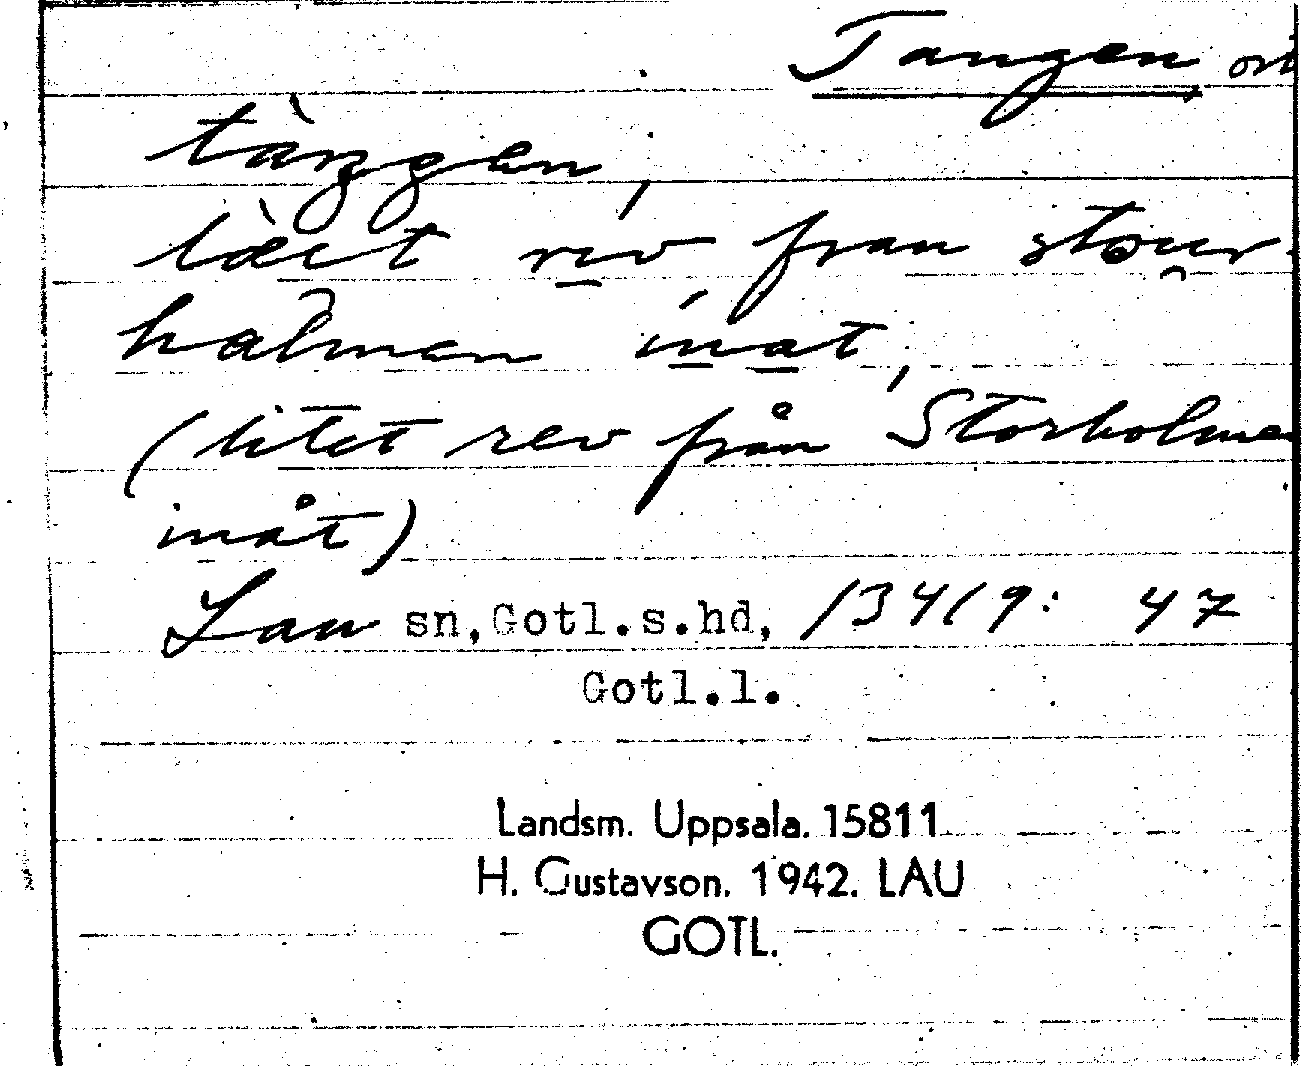 Tangen ort
tàŋgen,
lìtet rev fran stour-
halmen inat,
(litet rev från Storholmen
inåt)
Lau sn, Gotl.s.hd, /3419: 47
Gotl.l.
Landsm. Uppsala. 15811
H. Gustavson. 1942. LAU
GOTL.